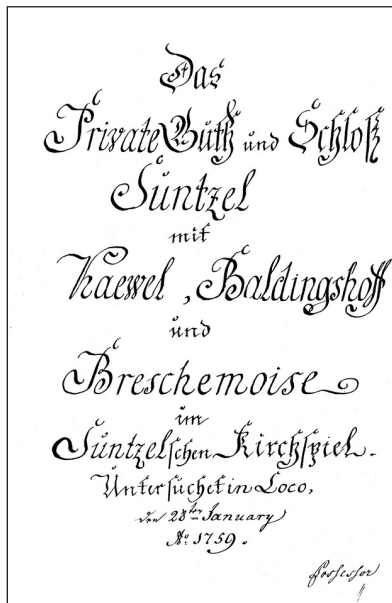 Das
Private Guth und Schloß
Suntzel
mit
Kaewel, Baldingshoff
und
Breschemoise
im
Suntzelschen Kirchspiel.
Untersuchet in Loco,
den 28ten January
Ao 1759.
Possessor